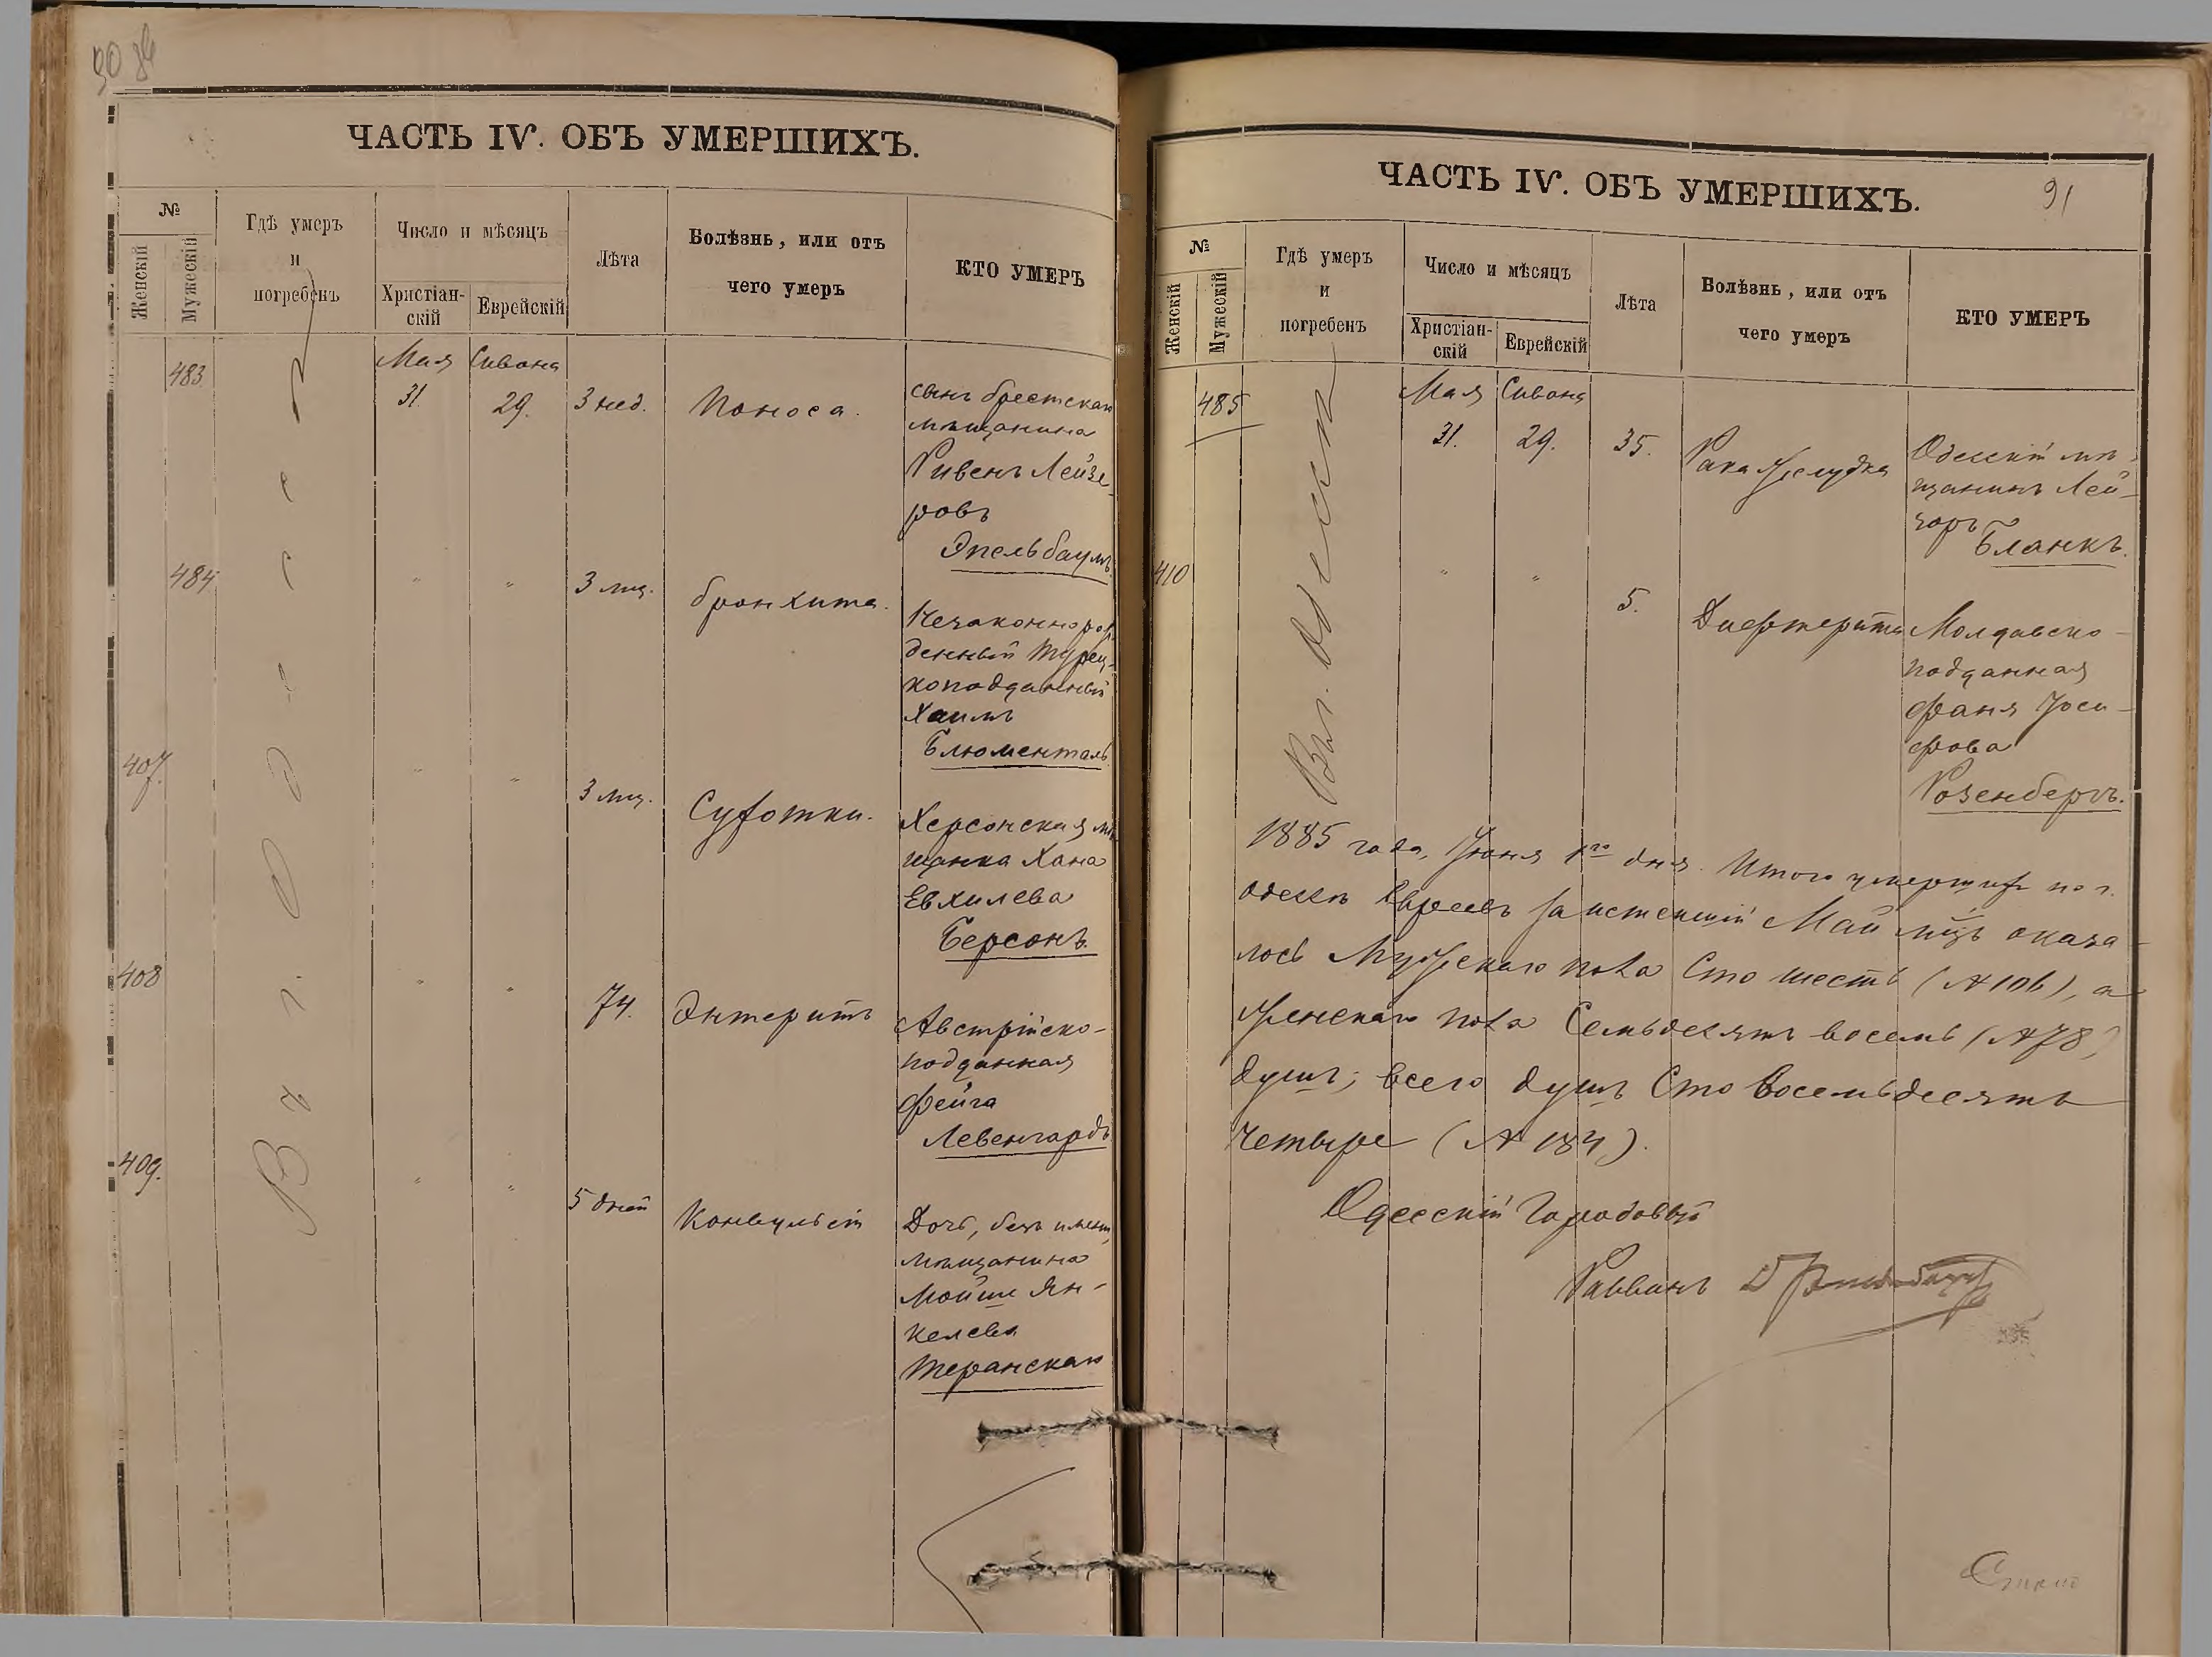 90
ЧАСТЬ IV. ОБЪ УМЕРШИХЪ.
№
Женскій
Мужескій
Гдѣ умеръ
и
погребенъ
Число и мѣсяцъ
Христіан-
скій
Еврейскій
Лѣта
Болѣзнь, или отъ
чего умеръ
КТО УМЕРЪ
Въ г. Одессѣ
483
Мая Сивана
31. 29. 3 нед. Поноса.
сынъ брестскаго
мѣщанина
Ривенъ Лейзе-
ровъ
Эпельбаумъ.
484 " " 3 мѣс. бронхита.
Незаконнорож
денный Турец-
коподданный
Хаимъ
Блюменталь
407. " " 3 мѣс. Сухотки.
Херсонская мѣ
щанка Хана
Евхилева
Берсонъ.
408 " " 74. Энтеритъ
Австрійско-
подданная
Фейга
Левенгардъ
409. " " 5 дней Конвульсій
Дочь, безъ имени,
мѣщанина
Мойше Ян-
келева
Теранскаго
ЧАСТЬ IV. ОБЪ УМЕРШИХЪ.
91
№
Женскій
Мужескій
Гдѣ умеръ
и
погребенъ
Число и мѣсяцъ
Христіан-
скій
Еврейскій
Лѣта
Болѣзнь, или отъ
чего умеръ
КТО УМЕРЪ
Въ г. Одессѣ
485
Мая Сивана
31. 29. 35. Рака желудка
Одесскій мѣ-
щанинъ Лей-
зоръ
Бланкъ.
410 " " 5. Дифтерита
Молдавско-
подданная
Фаня Іоси-
фова
Розенбергъ.
1885 года, Іюня 1го дня. Итого умершихъ по г.
Одессѣ Евреевъ за истекшій Май мѣцъ оказа-
лось Мужскаго пола Сто шесть (№ 106), а
женскаго пола Семьдесятъ восемь (№ 78)
душъ; всего душъ Сто Восемьдесятъ
четыре (№ 184).
Одесскій Городовый
Раввинъ